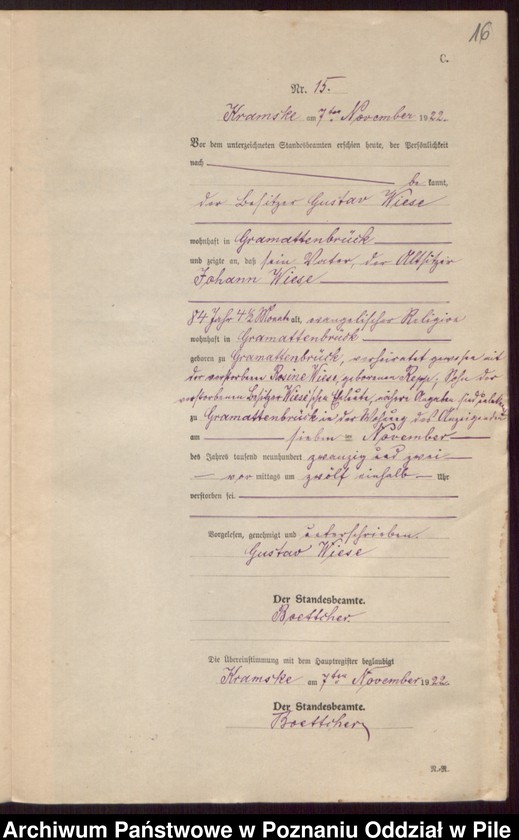 16
C.
Nr. 15.
Kramske am 7ten November 1922.
Vor dem unterzeichneten Standesbeamten erschien heute, der Persönlichkeit
nach be kannt,
der Besitzer Gustav Wiese
wohnhaft in Gramattenbrück
und zeigte an, daß sein Vater, der Altsitzer
Johann Wiese
84 Jahr 4½ Monate alt, evangelischer Religion
wohnhaft in Gramattenbrück
geboren zu Gramattenbrück, verheiratet gewesen mit
der verstorbenen Rosine Wiese, geborenen Repp, Sohn der
verstorbenen Besitzer Wiese'schen Eheleute, nähere Angaben sind
zu Gramattenbrück in der Wohnung des Anzeigenden
am sieben ten November
des Jahres tausend neunhundert zwanzig und zwei
vor mittags um zwölf einhalb Uhr
verstorben sei.
Vorgelesen, genehmigt und unterschrieben.
Gustav Wiese
Der Standesbeamte.
Boettcher.
Die Übereinstimmung mit dem Hauptregister beglaubigt
Kramske am 7ten November 1922.
Der Standesbeamte.
Boettcher
N.-R.
Archiwum Państwowe w Poznaniu Oddział w Pile